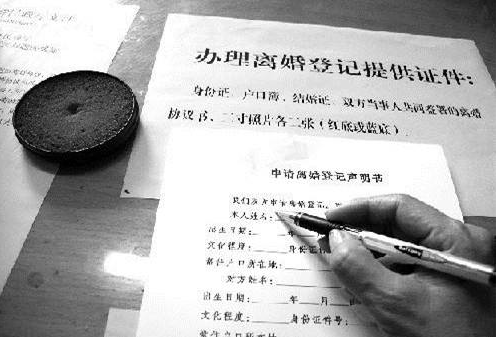 办理离婚登记提供证件:
身份证、户口簿、结婚证、双方当事人共同签署的离婚
协议书、二寸照片各二张(红底或蓝底)。
申请离婚登记声明书
我们双方申请离婚登记,
本人姓名:
出生日期:____年
文化程度:____身份证
常住户口所在地:
对方姓名:
出生日期:____年__月
文化程度:____身份证件号:
常住户口所在地